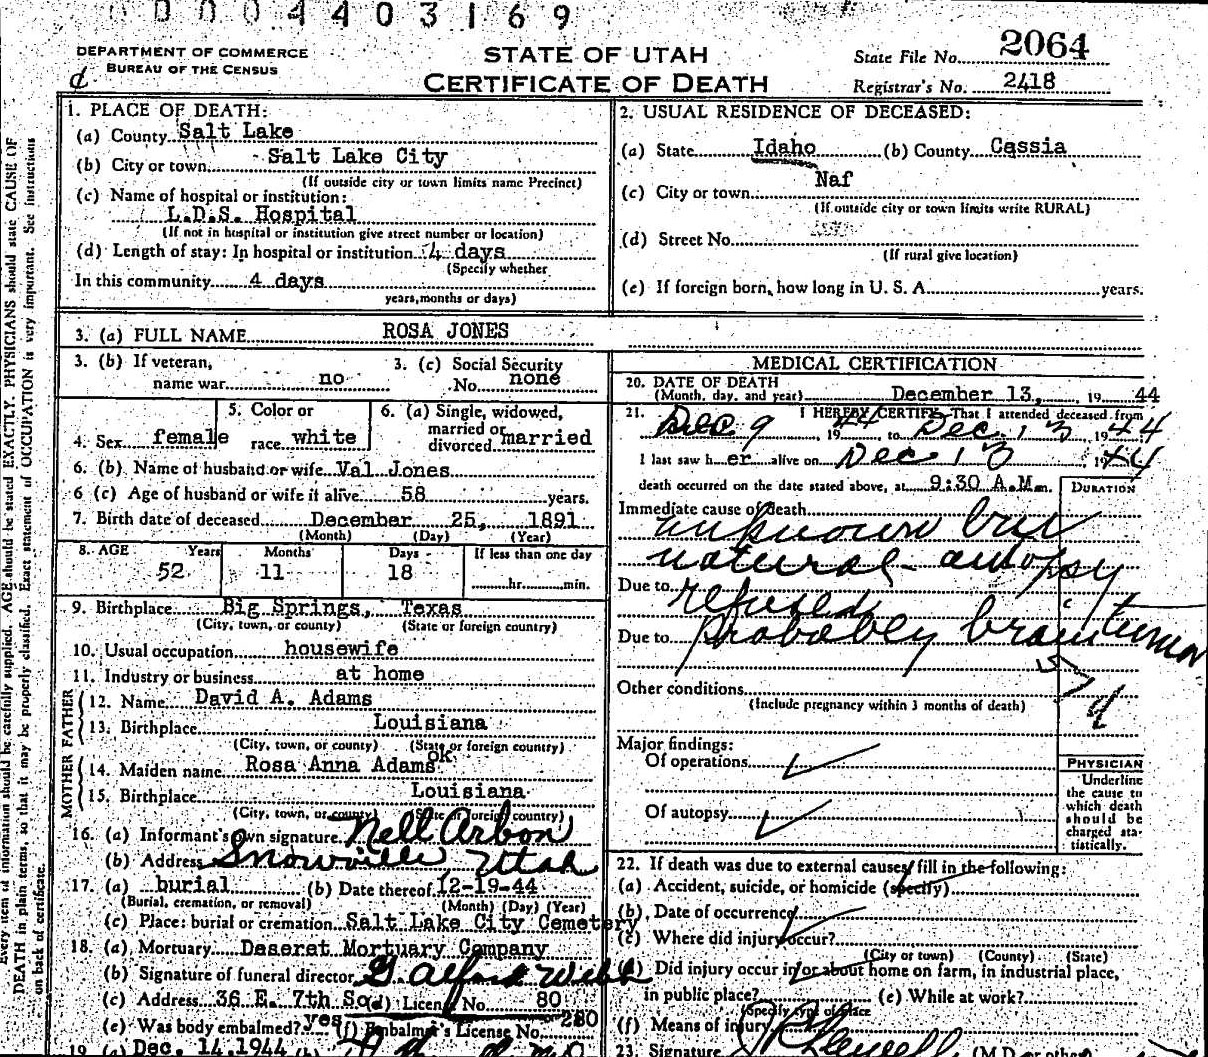 0004403169
DEPARTMENT OF COMMERCE
BUREAU OF THE CENSUS
STATE OF UTAH
CERTIFICATE OF DEATH
State File No. 2064
Registrar's No. 2418
1. PLACE OF DEATH:
(a) County Salt Lake
(b) City or town Salt Lake City
(If outside city or town limits name Precinct)
(c) Name of hospital or institution:
L.D.S. Hospital
(If not in hospital or institution give street number or location)
(d) Length of stay: In hospital or institution 4 days
(Specify whether
In this community 4 days
years, months or days)
2. USUAL RESIDENCE OF DECEASED:
(a) State Idaho (b) County Cassia
(c) City or town Naf
(If outside city or town limits write RURAL)
(d) Street No.
(If rural give location)
(e) If foreign born, how long in U. S. A. years.
3. (a) FULL NAME ROSA JONES
3. (b) If veteran, name war no
3. (c) Social Security No. none
4. Sex female
5. Color or race white
6. (a) Single, widowed, married or divorced married
6. (b) Name of husband or wife Val Jones
6 (c) Age of husband or wife if alive 58 years.
7. Birth date of deceased December 25, 1891
(Month) (Day) (Year)
8. AGE Years Months Days If less than one day
52 11 18 hr. min.
9. Birthplace Big Springs, Texas
(City, town, or county) (State or foreign country)
10. Usual occupation housewife
11. Industry or business at home
FATHER
12. Name David A. Adams
13. Birthplace Louisiana
(City, town, or county) (State or foreign country)
MOTHER
14. Maiden name Rosa Anna Adams ok
15. Birthplace Louisiana
(City, town, or county) (State or foreign country)
16. (a) Informant's own signature Nell Arbon
(b) Address Snowville, Utah
17. (a) burial (b) Date thereof 12-19-44
(Burial, cremation, or removal) (Month) (Day) (Year)
(c) Place: burial or cremation Salt Lake City Cemetery
18. (a) Mortuary Deseret Mortuary Company
(b) Signature of funeral director
(c) Address 36 E. 7th So. (d) License No. 80
(e) Was body embalmed? yes (f) Embalmer's License No. 280
19. (a) Dec. 14, 1944 (b)
MEDICAL CERTIFICATION
20. DATE OF DEATH
(Month, day, and year) December 13, 19 44
21. I HEREBY CERTIFY, That I attended deceased from
Dec 9, 1944 to Dec. 13 1944
I last saw her alive on Dec 13, 1944
death occurred on the date stated above, at 9:30 A.M. m.
DURATION
Immediate cause of death
unknown but
natural - autopsy
Due to refused
Due to probably brain tumor
57d
Other conditions
(Include pregnancy within 3 months of death)
Major findings:
Of operations
Of autopsy
PHYSICIAN
Underline
the cause to
which death
should be
charged sta-
tistically.
22. If death was due to external causes, fill in the following:
(a) Accident, suicide, or homicide (specify)
(b) Date of occurrence
(c) Where did injury occur?
(City or town) (County) (State)
(d) Did injury occur in or about home on farm, in industrial place,
in public place? (e) While at work?
(Specify type of place
(f) Means of injury
23. Signature (M.D. or other)
Every item of information should be carefully supplied. AGE should be stated EXACTLY. PHYSICIANS should state CAUSE OF
DEATH in plain terms, so that it may be properly classified. Exact statement of OCCUPATION is very important. See instructions
on back of certificate.